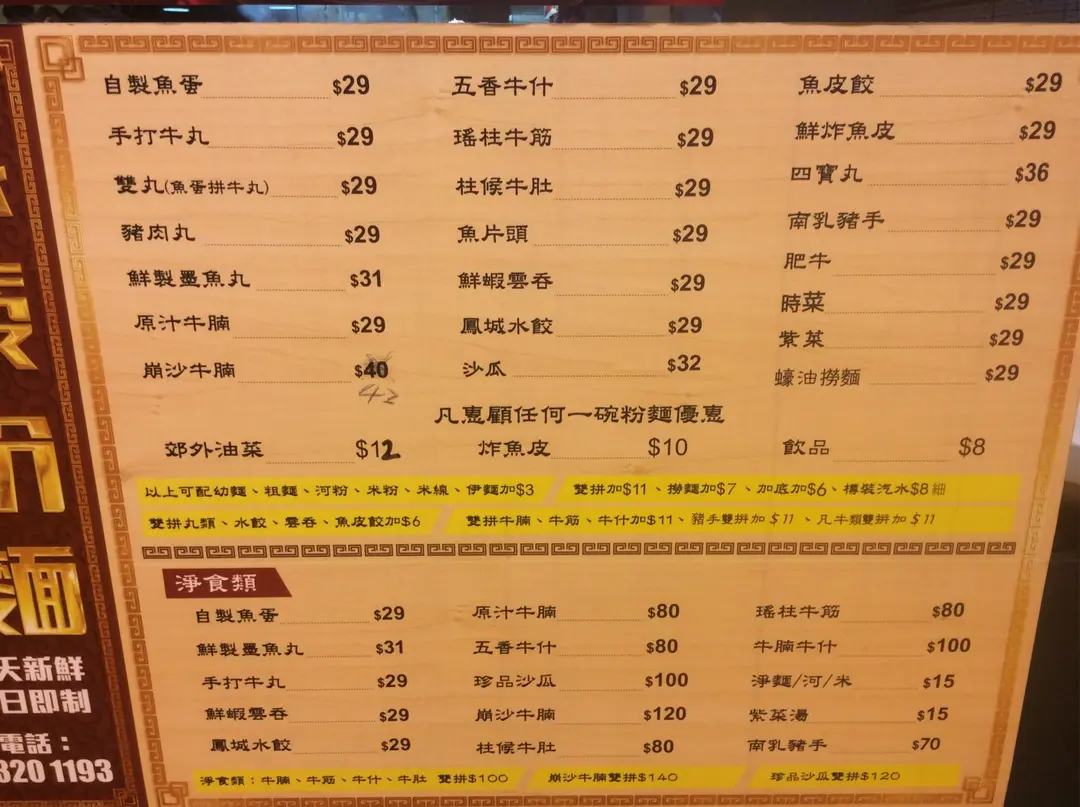 自製魚蛋 $29
手打牛丸 $29
雙丸(魚蛋拼牛丸) $29
豬肉丸 $29
鮮製墨魚丸 $31
原汁牛腩 $29
崩沙牛腩 $40
42
五香牛什 $29
瑤柱牛筋 $29
柱候牛肚 $29
魚片頭 $29
鮮蝦雲吞 $29
鳳城水餃 $29
沙瓜 $32
魚皮餃 $29
鮮炸魚皮 $29
四寶丸 $36
南乳豬手 $29
肥牛 $29
時菜 $29
紫菜 $29
蠔油撈麵 $29
凡惠顧任何一碗粉麵優惠
郊外油菜 $12 炸魚皮 $10 飲品 $8
以上可配幼麵、粗麵、河粉、米粉、米線、伊麵加$3 雙拼加$11、撈麵加$7、加底加$6、樽裝汽水$8細
雙拼丸類、水餃、雲吞、魚皮餃加$6 雙拼牛腩、牛筋、牛什加$11、豬手雙拼加$11、凡牛類雙拼加$11
淨食類
自製魚蛋 $29
鮮製墨魚丸 $31
手打牛丸 $29
鮮蝦雲吞 $29
鳳城水餃 $29
原汁牛腩 $80
五香牛什 $80
珍品沙瓜 $100
崩沙牛腩 $120
柱候牛肚 $80
瑤柱牛筋 $80
牛腩牛什 $100
淨麵/河/米 $15
紫菜湯 $15
南乳豬手 $70
淨食類：牛腩、牛筋、牛什、牛肚 雙拼$100 崩沙牛腩雙拼$140 珍品沙瓜雙拼$120
天新鮮
日即制
電話：
320 1193